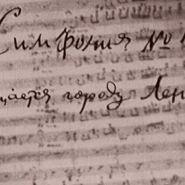 Симфония №
щается городу Лен